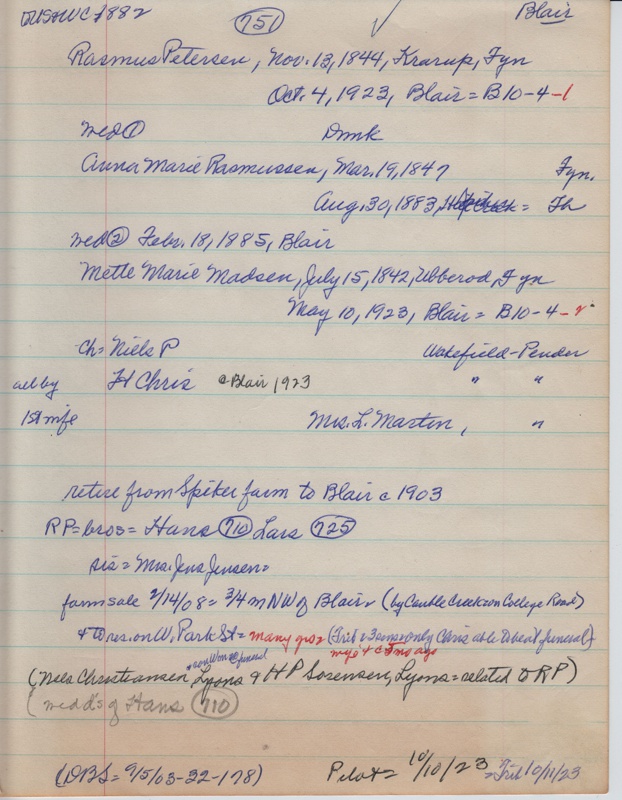 751 Blair
Rasmus Petersen, Nov. 13, 1844, Krarup, Fyn
Oct. 4, 1923, Blair = B10-4-1
wed ① Dmk
Anna Marie Rasmussen, Mar. 19, 1847 Fyn.
Aug. 30, 1883, = Th
wed ② Febr. 18, 1885, Blair
Mette Marie Madsen, July 15, 1842, Ubberod, Fyn
May 10, 1923, Blair = B10-4-2
Ch = Niels P Wakefield-Pender
all by H Chris c Blair 1923 " "
1st wife Mrs. L. Martin, "
retire from Spiker farm to Blair c 1903
RP = bros = Hans 710 Lars 725
sis = Mrs. Jens Jensen =
farm sale 2/14/08 = 3/4 m NW of Blair = (by Cauble Creek on College Road)
& to res. on W. Park St = many (Trib = 3 sons = only Chris able to be at funeral)
wife + c 5 mo ago
funeral
(Niels Christiansen, Lyons & H P Sorensen, Lyons = related to RP)
(wed d's of Hans 710)
(DBS = 9/5/03-32-178) Pilot = 10/10/23 = Trib 10/11/23